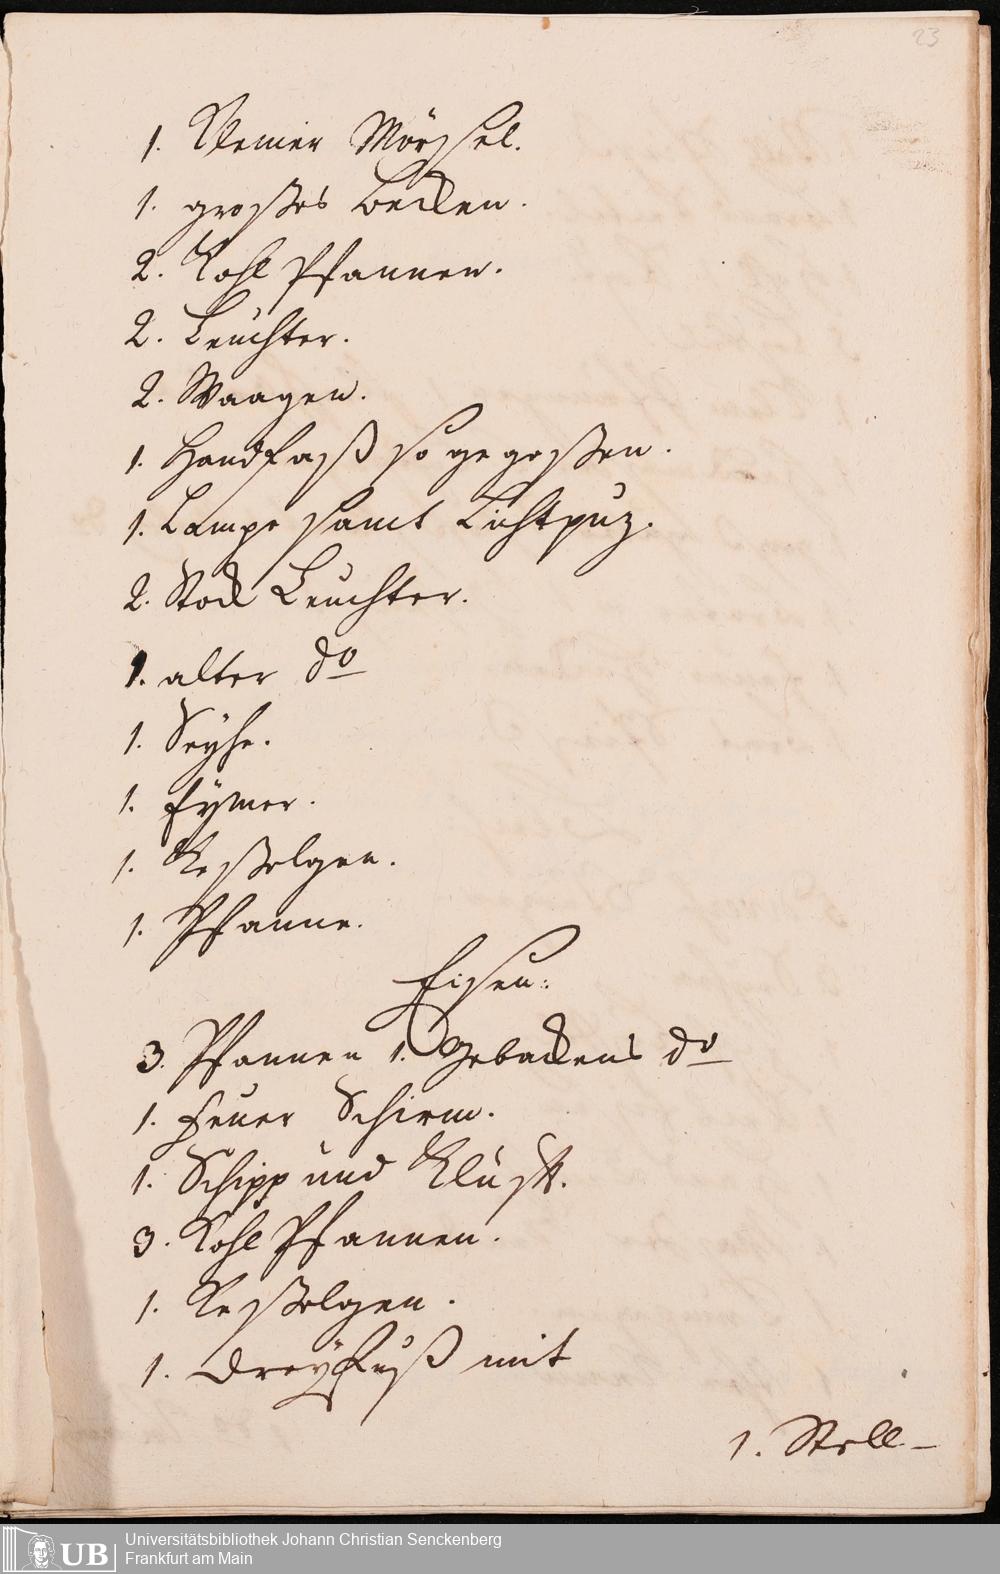 23
1. Kleiner Mörßel.
1. großes Becken.
2. Kohl Pfannen.
2. Leuchter.
2. Waagen.
1. Handfaß so gegoßen.
1. Lampe samt Lichtpuz.
2. Stock Leuchter.
1. alter do
1. Seyhe.
1. Eymer.
1. Keßelgen.
1. Pfanne.
Eisen:
3. Pfannen 1. Gebackens do
1. Feuer Schirm.
1. Schipp und Klufft.
3. Kohl Pfannen.
1. Keßelgen.
1. Dreyfuß mit
1. Stell-
UB
Universitätsbibliothek Johann Christian Senckenberg
Frankfurt am Main